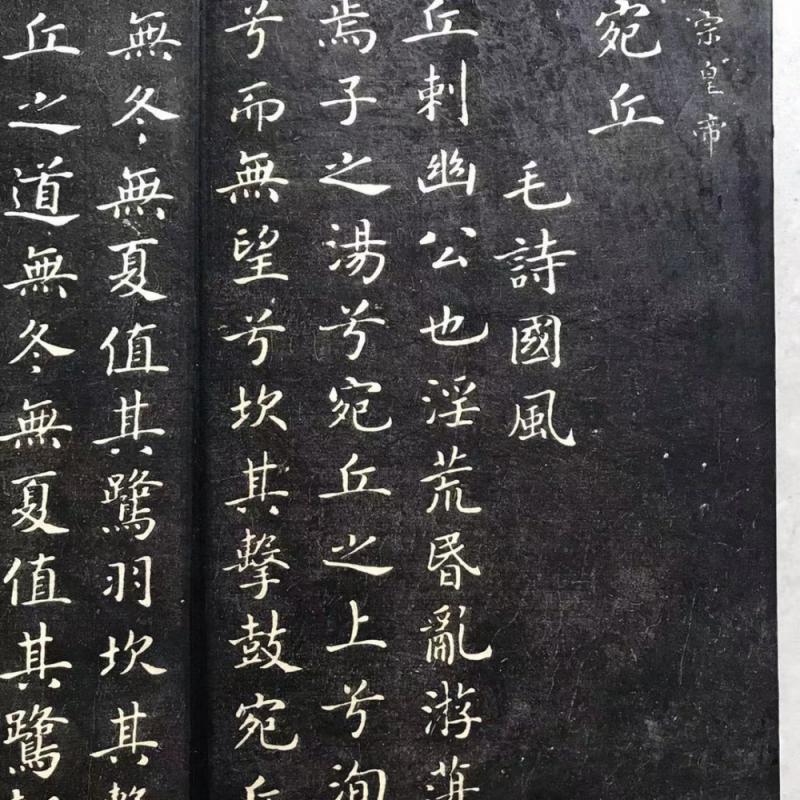 宗皇帝
宛丘
毛詩國風
丘刺幽公也淫荒昏亂游蕩
焉子之湯兮宛丘之上兮洵
兮而無望兮坎其擊鼓宛丘
無冬無夏值其鷺羽坎其擊
丘之道無冬無夏值其鷺